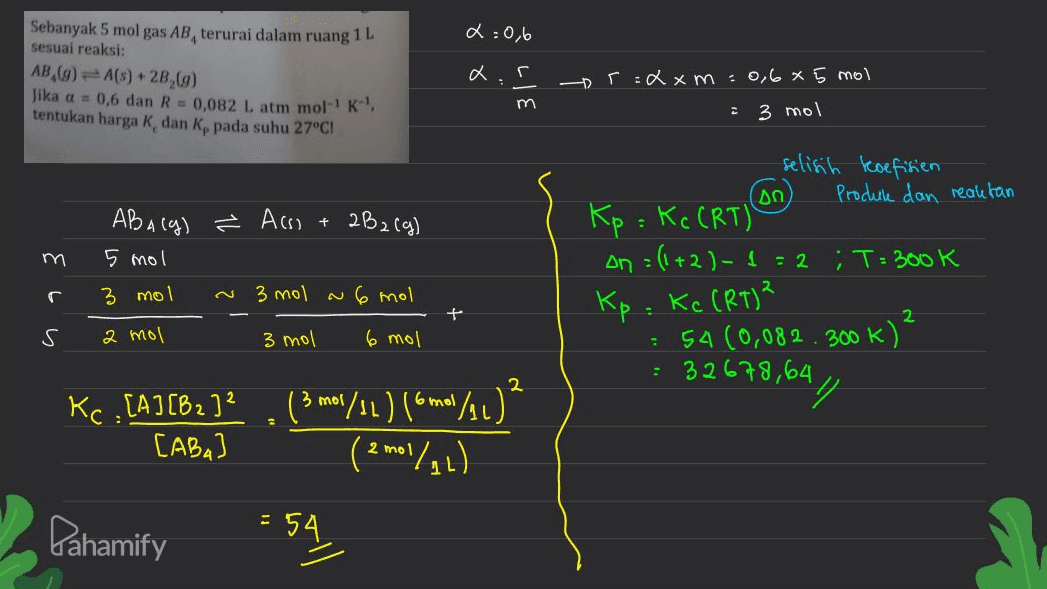 Sebanyak 5 mol gas AB₄ terurai dalam ruang 1 L
sesuai reaksi:
AB₄(g) ⇌ A(s) + 2B₂(g)
Jika α = 0,6 dan R = 0,082 L atm mol⁻¹ K⁻¹,
tentukan harga K꜀ dan Kₚ pada suhu 27°C!
α = 0,6
α = r/m → r = α × m = 0,6 × 5 mol
= 3 mol
AB₄(g) ⇌ A(s) + 2B₂(g)
m 5 mol
r 3 mol ~ 3 mol ~ 6 mol
- +
s 2 mol 3 mol 6 mol
Kc = [A][B₂]² / [AB₄] = (3 mol/1L)(6 mol/1L)² / (2 mol/1L)
= 54
selisih koefisien
Produk dan reaktan
Kp = Kc (RT)^Δn
Δn = (1+2) - 1 = 2 ; T = 300 K
Kp = Kc (RT)²
= 54 (0,082 . 300 K)²
= 32678,64
Pahamify